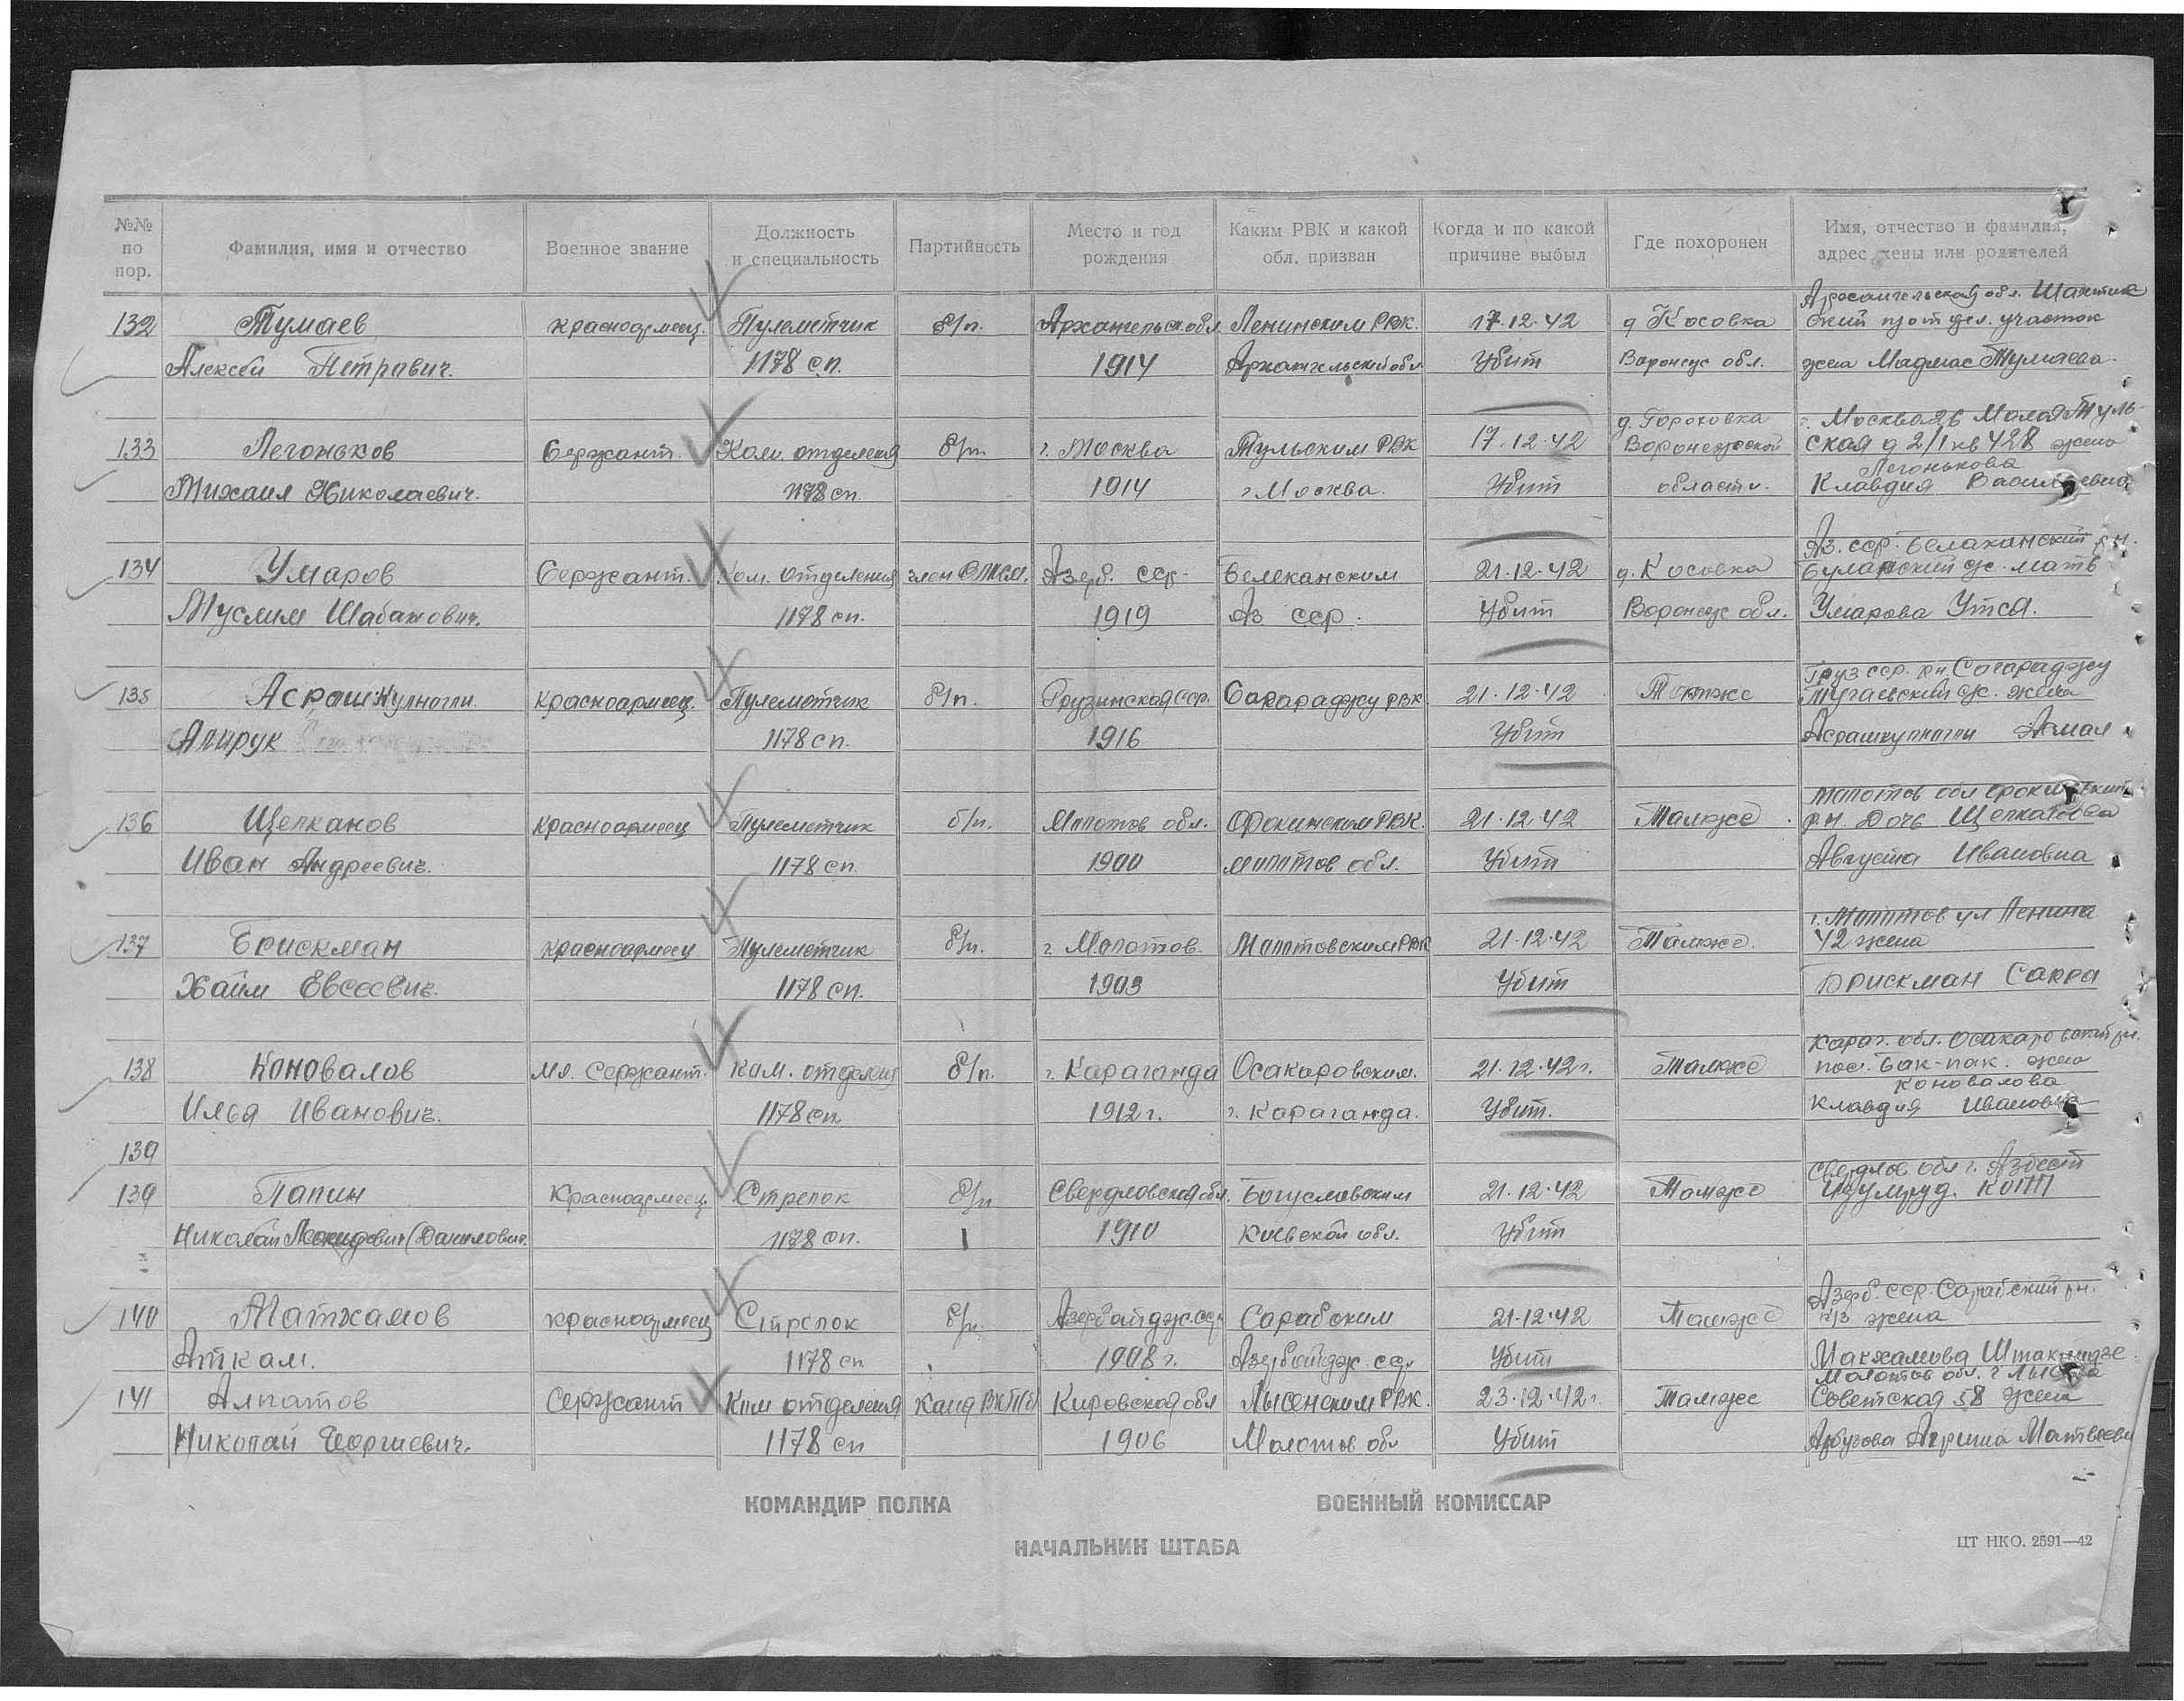 №№ по пор. Фамилия, имя и отчество Военное звание Должность и специальность Партийность Место и год рождения Каким РВК и какой обл. призван Когда и по какой причине выбыл Где похоронен Имя, отчество и фамилия, адрес жены или родителей
Архангельская обл.
132 Тумаев красноармеец. Пулеметчик б/п. Архангельск. обл. Ленинским РВК. 17.12.42 д Косовка участок
Алексей Петрович. 1178 с.п. 1914 Архангельской обл Убит Воронеж обл. жена Тумаева
д. Гороховка г. Москва Малая Туль-
133 Легоньков Сержант. Ком. отделения б/п г. Москва Тульским РВК 17.12.42 Воронежской ская д 2/1 кв 428 жена
Легонькова
Михаил Николаевич. 1178 сп 1914 г Москва. Убит области. Клавдия Васильевна
Аз. сср. Белаканский р-н.
134 Умаров Сержант. Ком. отделения член ВЛКСМ. Азерб. сср. Белеканским 21.12.42 д. Косовка с/с. мать
Муслим Шабанович. 1178 сп. 1919 Аз сср. Убит Воронеж обл. Умарова
Груз сср. рн. Согараджу
135 красноармеец. Пулеметчик б/п. Грузинская сср. Сагараджу РВК 21.12.42 Тамже с/с. жена
Апирук 1178 сп. 1916 Убит
Молотов обл
136 Щелканов красноармеец Пулеметчик б/п. Молотов обл. РВК. 21.12.42 Тамже. р-н. Дочь Щелканова
Иван Андреевич. 1178 сп. 1900 Молотов обл. Убит Августа Ивановна
г. Молотов ул Ленина
137 Брискман красноармеец Пулеметчик б/п. г. Молотов. Молотовским РВК 21.12.42 Тамже. 42 жена
Хаим Евсеевич. 1178 сп. 1903 Убит Брискман Сарра
Караг. обл. Осакаровский рн.
138 Коновалов мл. сержант. ком. отделен б/п. г. Караганда Осакаровским. 21.12.42 г. Тамже пос. Бак-пак. жена
Коновалова
Илья Иванович. 1178 сп 1912 г. г. Караганда. Убит. Клавдия Ивановна
139
Свердлов обл г. Азбест
139 Папин Красноармеец. Стрелок б/п Свердловская обл. Богуславским 21.12.42 Тамже Изумруд.
Николай (Данилович. 1178 сп. 1910 Киевской обл. Убит
Азерб. сср. рн.
140 Матхамов красноармеец Стрелок б/п. Азербайдж. сср. Сарабским 21.12.42 Тамже жена
Аткам. 1178 сп 1908 г. Азербайдж. сср Убит Макхамова
Молотов обл. г Лысьва
141 Алпатов Сержант Ком отделения Канд ВКП(б) Кировская обл Лысенским РВК. 23.12.42 г. Тамже Советская 58 жена
Николай Георгиевич. 1178 сп 1906 Молотов обл Убит
КОМАНДИР ПОЛКА ВОЕННЫЙ КОМИССАР
НАЧАЛЬНИК ШТАБА
ЦТ НКО. 2591—42